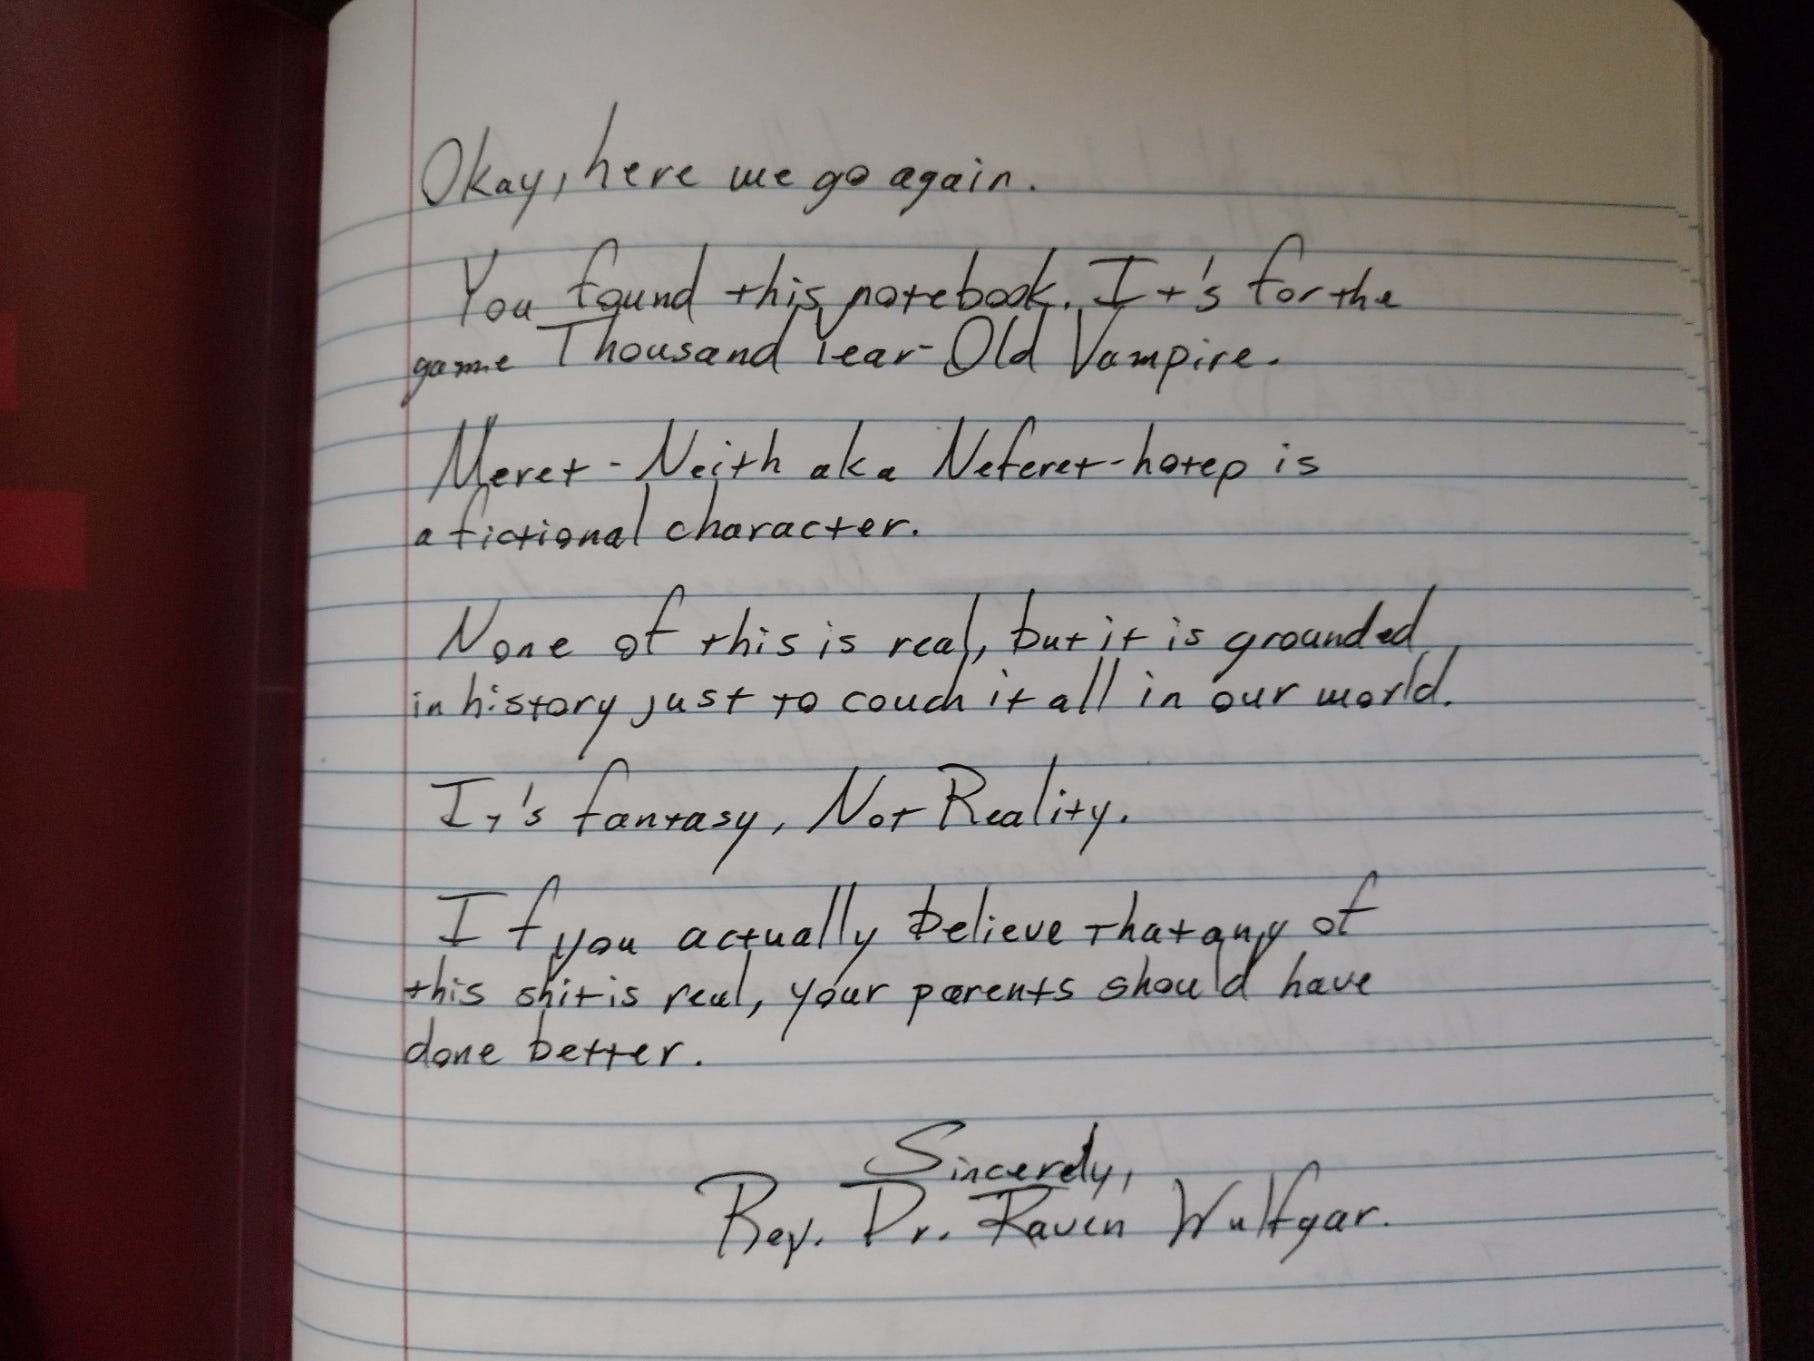 Okay, here we go again.
You found this notebook. It's for the
game Thousand Year-Old Vampire.
Meret-Neith aka Neferet-hotep is
a fictional character.
None of this is real, but it is grounded
in history just to couch it all in our world.
It's fantasy, Not Reality.
If you actually believe that any of
this shit is real, your parents should have
done better.
Sincerely,
Rev. Dr. Raven Wulfgar.